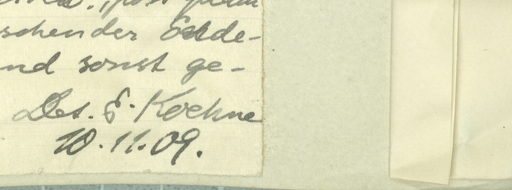 schender Erde-
nd sonst ge-
Det. E. Koehne
10.11.09.